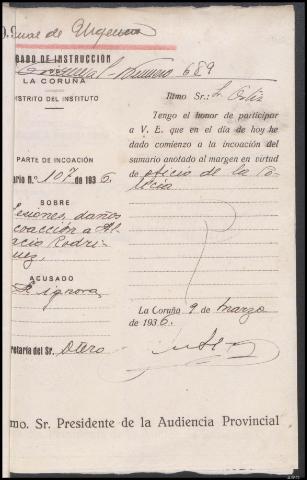 unal de Urgencia
GADO DE INSTRUCCIÓN
Criminal-número 689
DE
LA CORUÑA
DISTRITO DEL INSTITUTO
PARTE DE INCOACIÓN
ario N.º 107 de 1936.
SOBRE
lesiones, daños
coacción a
acio Rodri-
uez,
ACUSADO
Se ignora
retaría del Sr. Otero
Iltmo Sr.: S. Ortiz
Tengo el honor de participar
a V. E. que en el día de hoy he
dado comienzo a la incoación del
sumario anotado al margen en virtud
de oficio de la Po-
licía
La Coruña 9 de marzo
de 1936.
mo. Sr. Presidente de la Audiencia Provincial